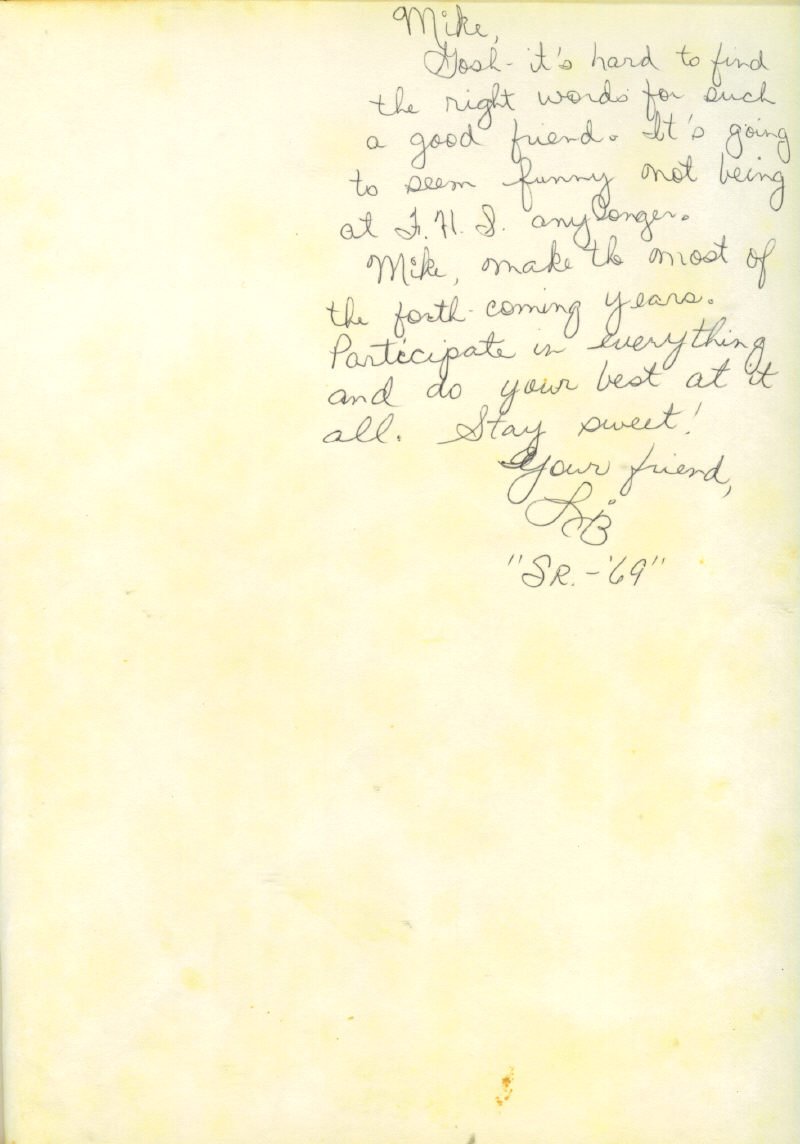 Mike,
Gosh - it's hard to find
the right words for such
a good friend. It's going
to seem funny not being
at F.H.S. any longer.
Mike, make the most of
the forth-coming years.
Participate in everything
and do your best at it
all. Stay sweet!
Your friend,
LiB
"SR. - '69"